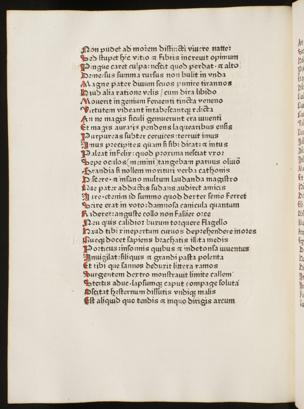 Non pudet ad morem discincti viuere nattę
Sed stupet hic vitio & fibris increuit opimum
Pingue caret culpa: nescit quod perdat: & alto
Demersus summa rursus non bullit in vnda
Magne pater diuum sęuos punire tirannos
Haud alia ratione velis / cum dira libido
Mouerit ingenium feruenti tincta veneno
Virtutem videant intabescantq; relicta
An ne magis siculi gemuerunt ęra iuuenci
Et magis auratis pendens laquearibus ensis
Purpureas subter ceruices terruit imus
Imus precipites quam si sibi dicat: & intus
Paleat infelix: quod proxima nesciat vxor
Sepe oculos / memini / tangebam paruus oliuo
Grandia si nollem morituri verba cathonis
Discere & insano multum laudanda magistro
Que pater adductis sudans audiret amicis
Iure etenim id summum quod dexter senio ferret
Scire erat in voto: damnosa canicula quantum
Raderet: angustę collo non fallier orcę
Neu quis callidior buxum torquere flagello
Haud tibi inexpertum curuos deprehendere mores
Quęq; docet sapiens brachatis illita medis
Porticus insomnis quibus & detonsa iuuentus
Inuigilat: siliquis & grandi pasta polenta
Et tibi que samios deduxit littera ramos
Surgentem dextro monstrauit limite callem
Stertis adhuc laxumq; caput compage soluta
Oscitat hesternum dissutis vndiq; malis
Est aliquid quo tendis & in quo dirigis arcum